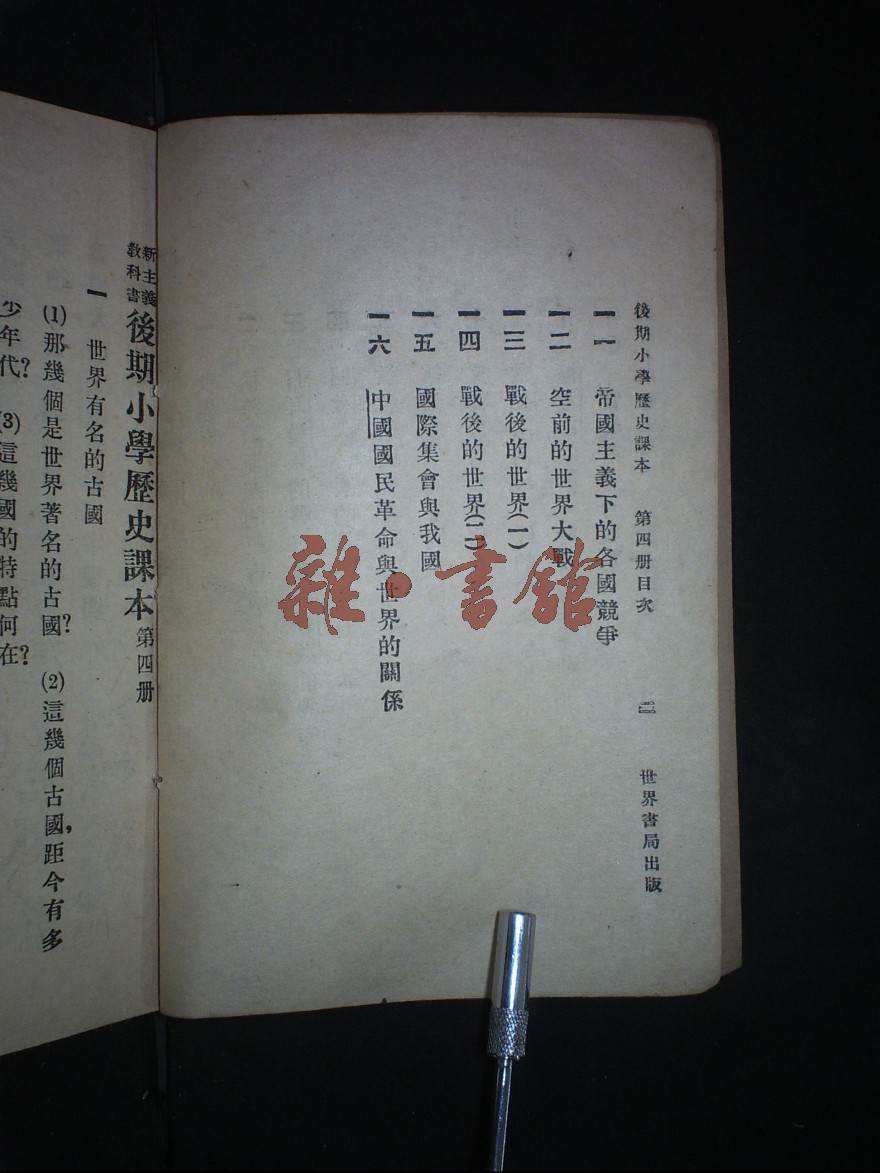 後期小學歷史課本　第四册目次　二　世界書局出版
一一　帝國主義下的各國競爭
一二　空前的世界大戰
一三　戰後的世界(一)
一四　戰後的世界(二)
一五　國際集會與我國
一六　中國國民革命與世界的關係
雜·書館
新主義教科書後期小學歷史課本第四册
一　世界有名的古國
(1)那幾個是世界著名的古國？　(2)這幾個古國，距今有多
少年代？　(3)這幾國的特點何在？